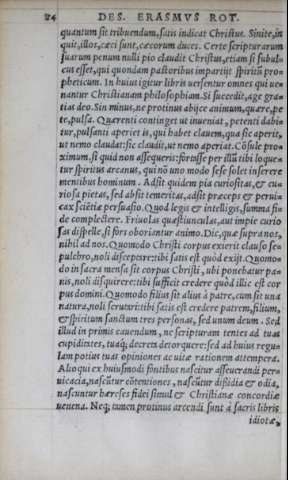 24 DES. ERASMVS ROT.
quantum sit tribuendum, satis indicat Christus. Sinite, in
quit, illos, cæci sunt, cæcorum duces. Certe scripturarum
suarum penum nulli pio claudit Christus, etiam si subulcus
esset, qui quondam pastoribus impartijt spiritũ pro
pheticum. In huiusigitur libris uersentur omnes qui ue
nantur Christianam philosophiam. Si succedit, age gra
tias deo. Sin minus, ne protinus abijce animum, quære, pe
te, pulsa. Quærenti continget ut inueniat, petenti dabi=
tur, pulsanti aperiet is, qui habet clauem, qua sic aperit,
ut nemo claudat: sic claudit, ut nemo aperiat. Cõsule pro=
ximum, si quid non assequeris: forsisse per illũ tibi loque=
tur spiritus arcanus, qui nõ uno modo sese solet inserere
mentibus hominum. Adsit quidem pia curiositas, & cu=
riosa pietas, sed absit temeritas, adsit præceps & perui=
cax scietiæ persuasio. Quod legis & intelligis, summa fi=
de complectere. Friuolas quæstiunculas, aut impie curio
sas dispelle, si fors oboriantur animo. Dic, quæ supra nos,
nihil ad nos. Quomodo Christi corpus exierit clauso se=
pulchro, noli disceptare: tibi satis est quòd exijt. Quomo=
do in sacra mensa sit corpus Christi, ubi ponebatur pa=
nis, noli disquirere: tibi sufficit credere quòd illic est cor
pus domini. Quomodo filius sit alius à patre, cum sit una
natura, noli scrutari: tibi satis est credere patrem, filium,
& spiritum sanctum tres personas, sed unum deum. Sed
illud in primis cauendum, ne scripturam tentes ad tuas
cupiditates, tuaq; decreta detorquere: sed ad huius regu=
lam potius tuas opiniones ac uitæ rationem attempera.
Alioqui ex huiusmodi fontibus nascitur asseuerandi per=
uicacia, nascũtur cõtentiones, nascũtur dissidia & odia,
nascuntur hæreses fidei simul & Christianæ concordiæ
uenena. Neq; tamen protinus arcendi sunt à sacris libris
idiotæ,